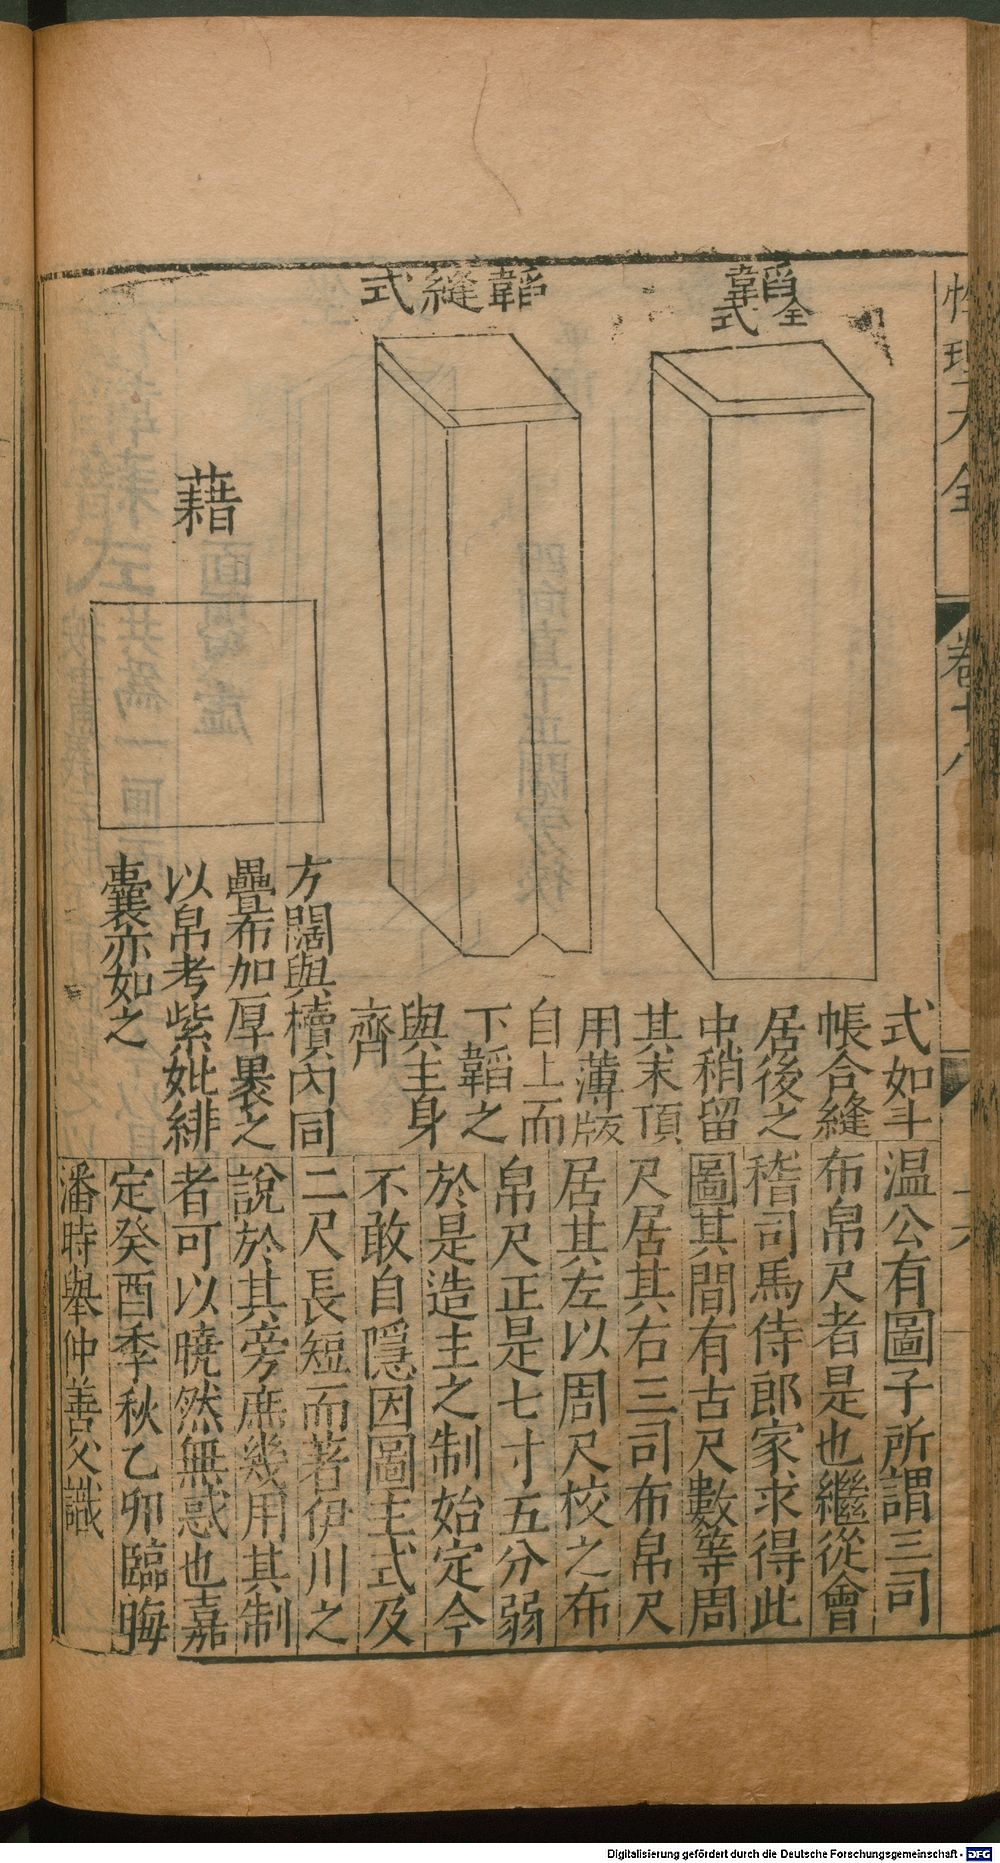 性理大全
卷十八
十六
韜全式
式縫韜
藉
式如斗
帳合縫
居後之
中稍留
其末頂
用薄版
自上而
下韜之
與主身
齊
方闊與櫝內同
疊布加厚裹之
以帛考紫妣緋
囊亦如之
温公有圖子所謂三司
布帛尺者是也繼從會
稽司馬侍郎家求得此
圖其間有古尺數等周
尺居其右三司布帛尺
居其左以周尺校之布
帛尺正是七寸五分弱
於是造主之制始定今
不敢自隱因圖主式及
二尺長短而著伊川之
說於其旁庶幾用其制
者可以曉然無惑也嘉
定癸酉季秋乙卯臨海
潘時舉仲善父識
Digitalisierung gefördert durch die Deutsche Forschungsgemeinschaft - DFG